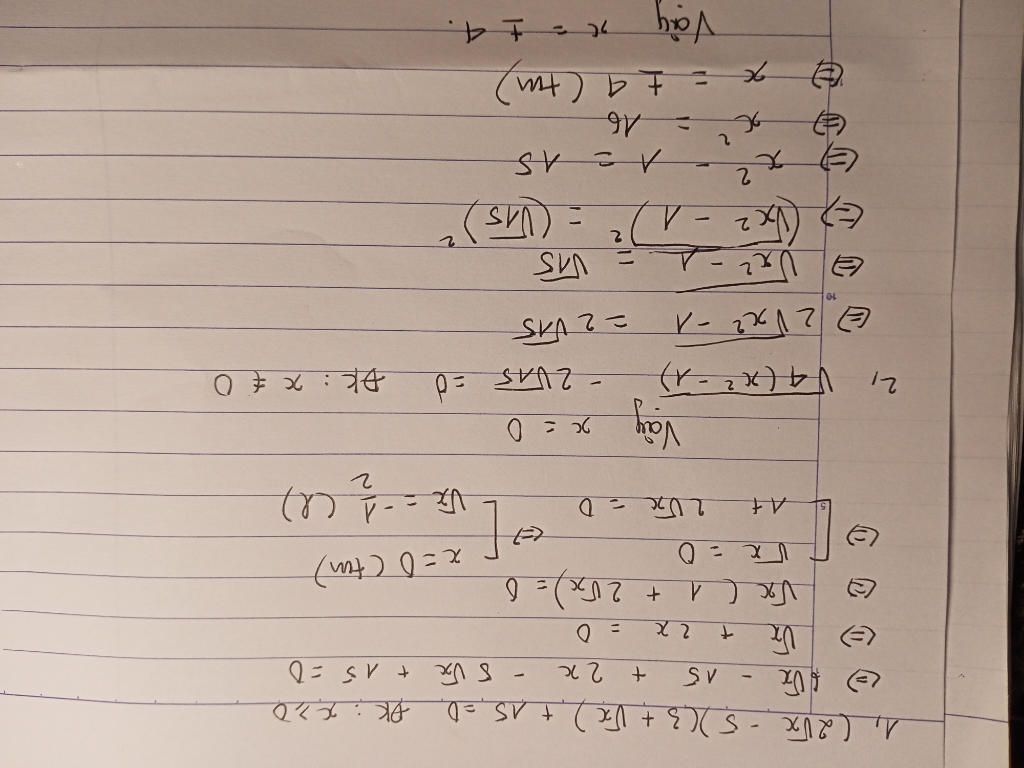 1, (2√x - 5)(3 + √x) + 15 = 0 ĐK: x ≥ 0
(=) 6√x - 15 + 2x - 5√x + 15 = 0
(=) √x + 2x = 0
(=) √x (1 + 2√x) = 0
(=) [ √x = 0 (=) [ x = 0 (tm)
1 + 2√x = 0 √x = -1/2 (l)
Vậy x = 0
2, √4(x² - 1) - 2√15 = 0 ĐK: x ≠ 0
(=) 2√x² - 1 = 2√15
(=) √x² - 1 = √15
(=) (√x² - 1)² = (√15)²
(=) x² - 1 = 15
(=) x² = 16
(=) x = ± 4 (tm)
Vậy x = ± 4.